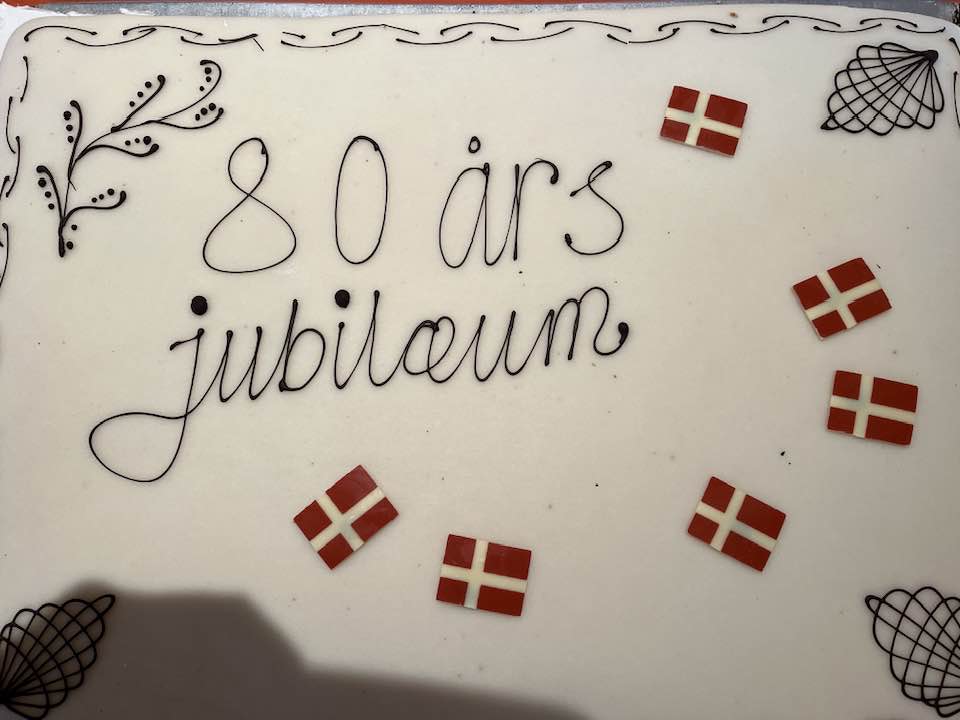 80 års
jubilæum